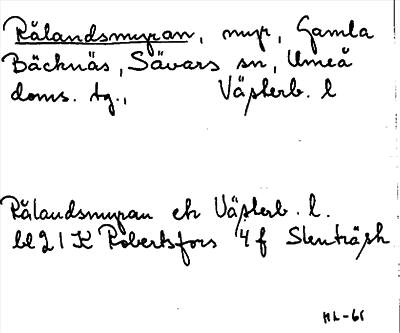 Rålandsmyran, myr, Gamla
Bäcknäs, Sävars sn, Umeå
doms. tg., Västerb. l
Rålandsmyran ek Västerb. l.
bl 21 K Robertsfors 4 f Stenträsk
HL-65